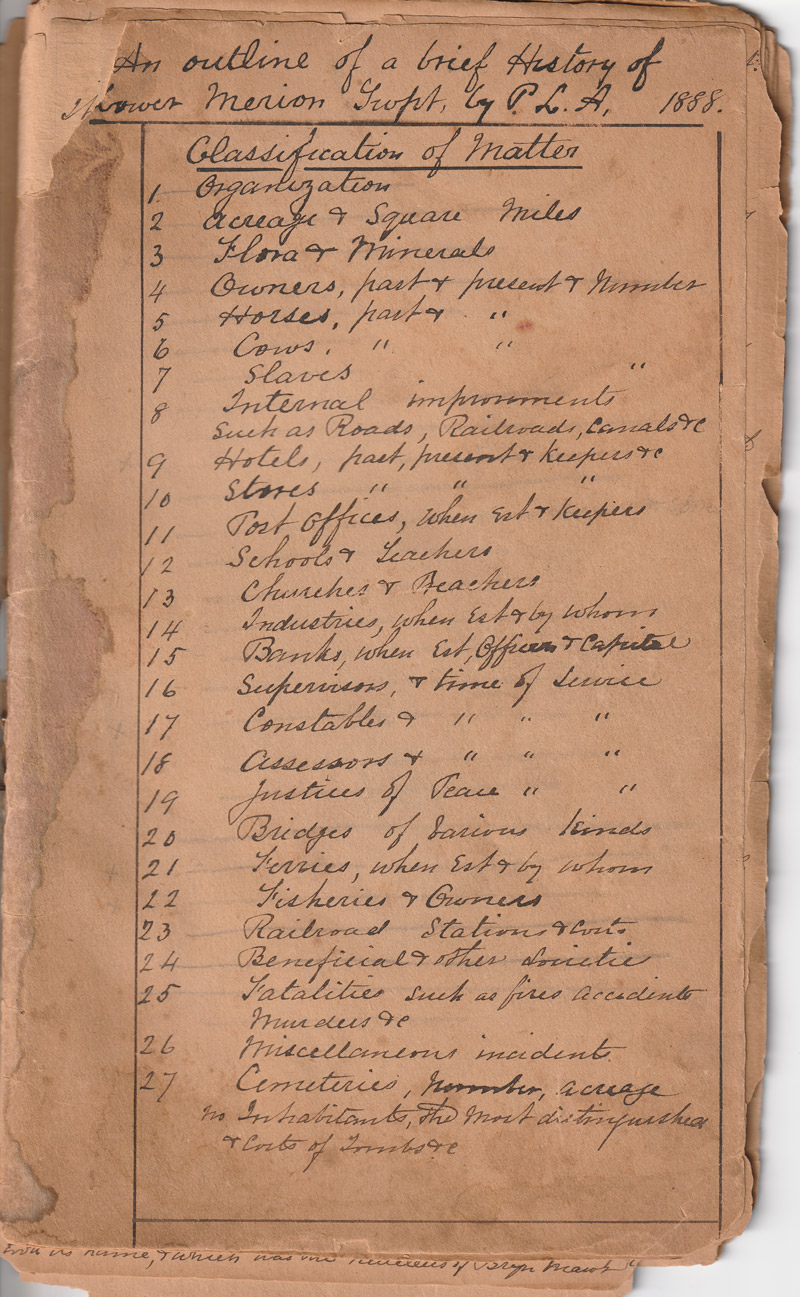 An outline of a brief History of
Lower Merion Twpt. by P. L. A, 1888.
Classification of Matter
1 Organization
2 Acreage & Square Miles
3 Flora & Minerals
4 Owners, past & present & Number
5 Horses, past & "
6 Cows, " "
7 Slaves "
8 Internal improvments
Such as Roads, Railroads, Canals &c
9 Hotels, past, present & Keepers &c
10 Stores " " "
11 Post Offices, when Est & Keepers
12 Schools & Teachers
13 Churches & Preachers
14 Industries, when Est & by whom
15 Banks, when Est, Officers & Capital
16 Supervisors, & time of Service
17 Constables & " " "
18 Assessors & " " "
19 Justices of Peace " "
20 Bridges of Various Kinds
21 Ferries, when Est & by whom
22 Fisheries & Owners
23 Railroad Stations & Costs
24 Beneficial & other Societies
25 Fatalities such as fires accidents
Murders &c
26 Miscellaneous incidents
27 Cemeteries, Number, acreage
no Inhabitants, the Most distinguished
& Costs of Tombs &c
its name, & which was the of Bryn Mawr